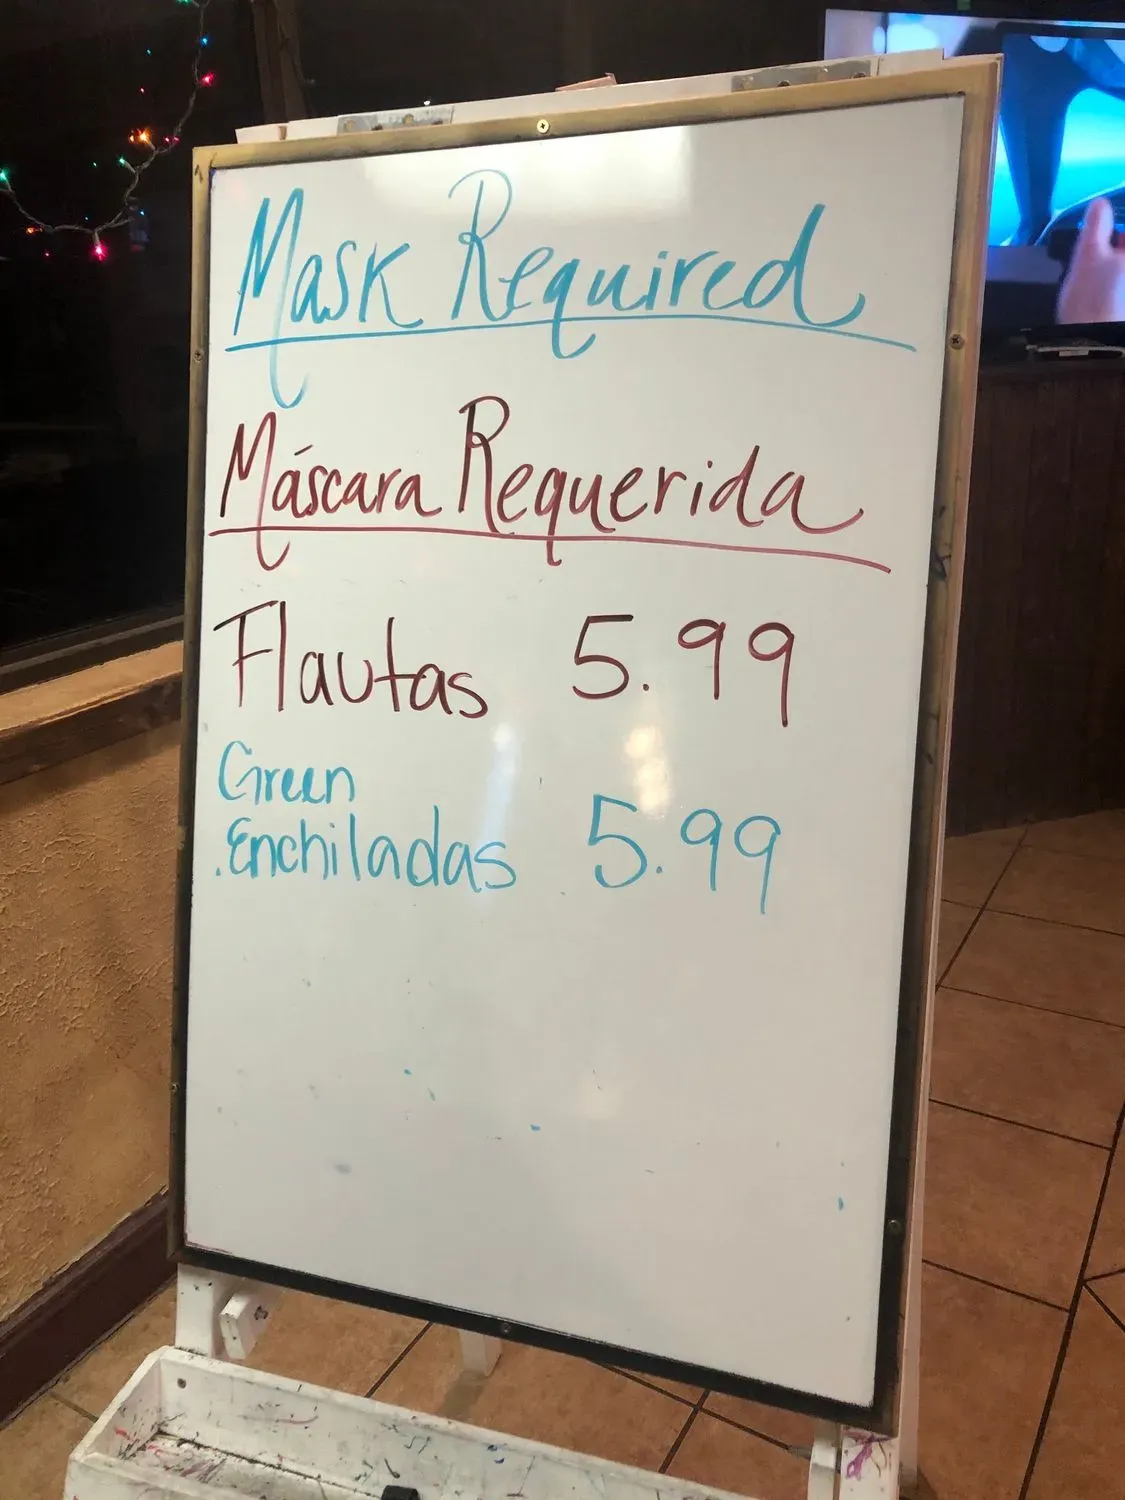 Mask Required
Máscara Requerida
Flautas 5.99
Green
Enchiladas 5.99